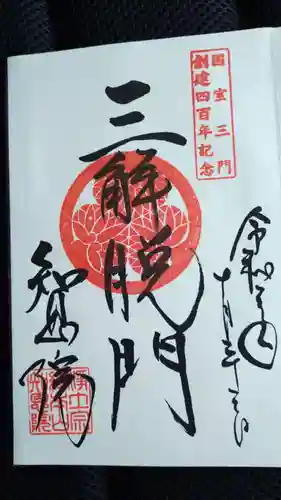 国宝三門
創建四百年記念
令和三年
十月
三解脱門
知恩院
浄土宗
総本山
知恩院